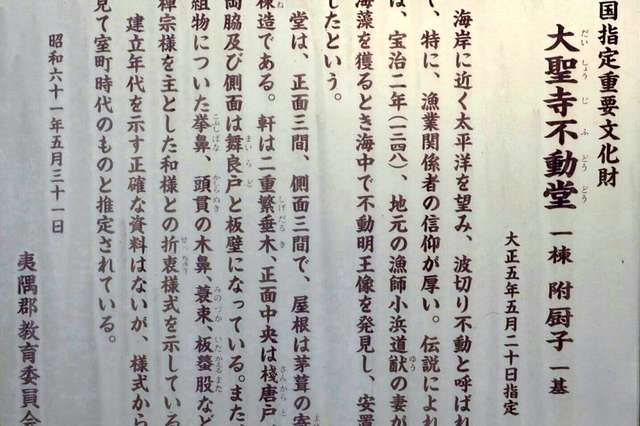 国指定重要文化財
大聖寺不動堂 一棟 附厨子 一基
だいしょうじふどうどう
大正五年五月二十日指定
海岸に近く太平洋を望み、波切り不動と呼ばれ
、特に、漁業関係者の信仰が厚い。伝説によれ
、宝治二年(一二四八)、地元の漁師小浜道猷の妻が
ゆう
海藻を獲るとき海中で不動明王像を発見し、安置
したという。
堂は、正面三間、側面三間で、屋根は茅葺の寄
棟造である。軒は二重繁垂木、正面中央は棧唐戸、
しげだるき
さんからと
両脇及び側面は舞良戸と板壁になっている。また、
まいらど
組物についた拳鼻、頭貫の木鼻、蓑束、板蟇股など
こぶしばな
かしらぬき
みのづか
いたかえるまた
禅宗様を主とした和様との折衷様式を示している
せっちゅう
建立年代を示す正確な資料はないが、様式から
見て室町時代のものと推定されている。
昭和六十一年五月三十一日
夷隅郡教育委員会